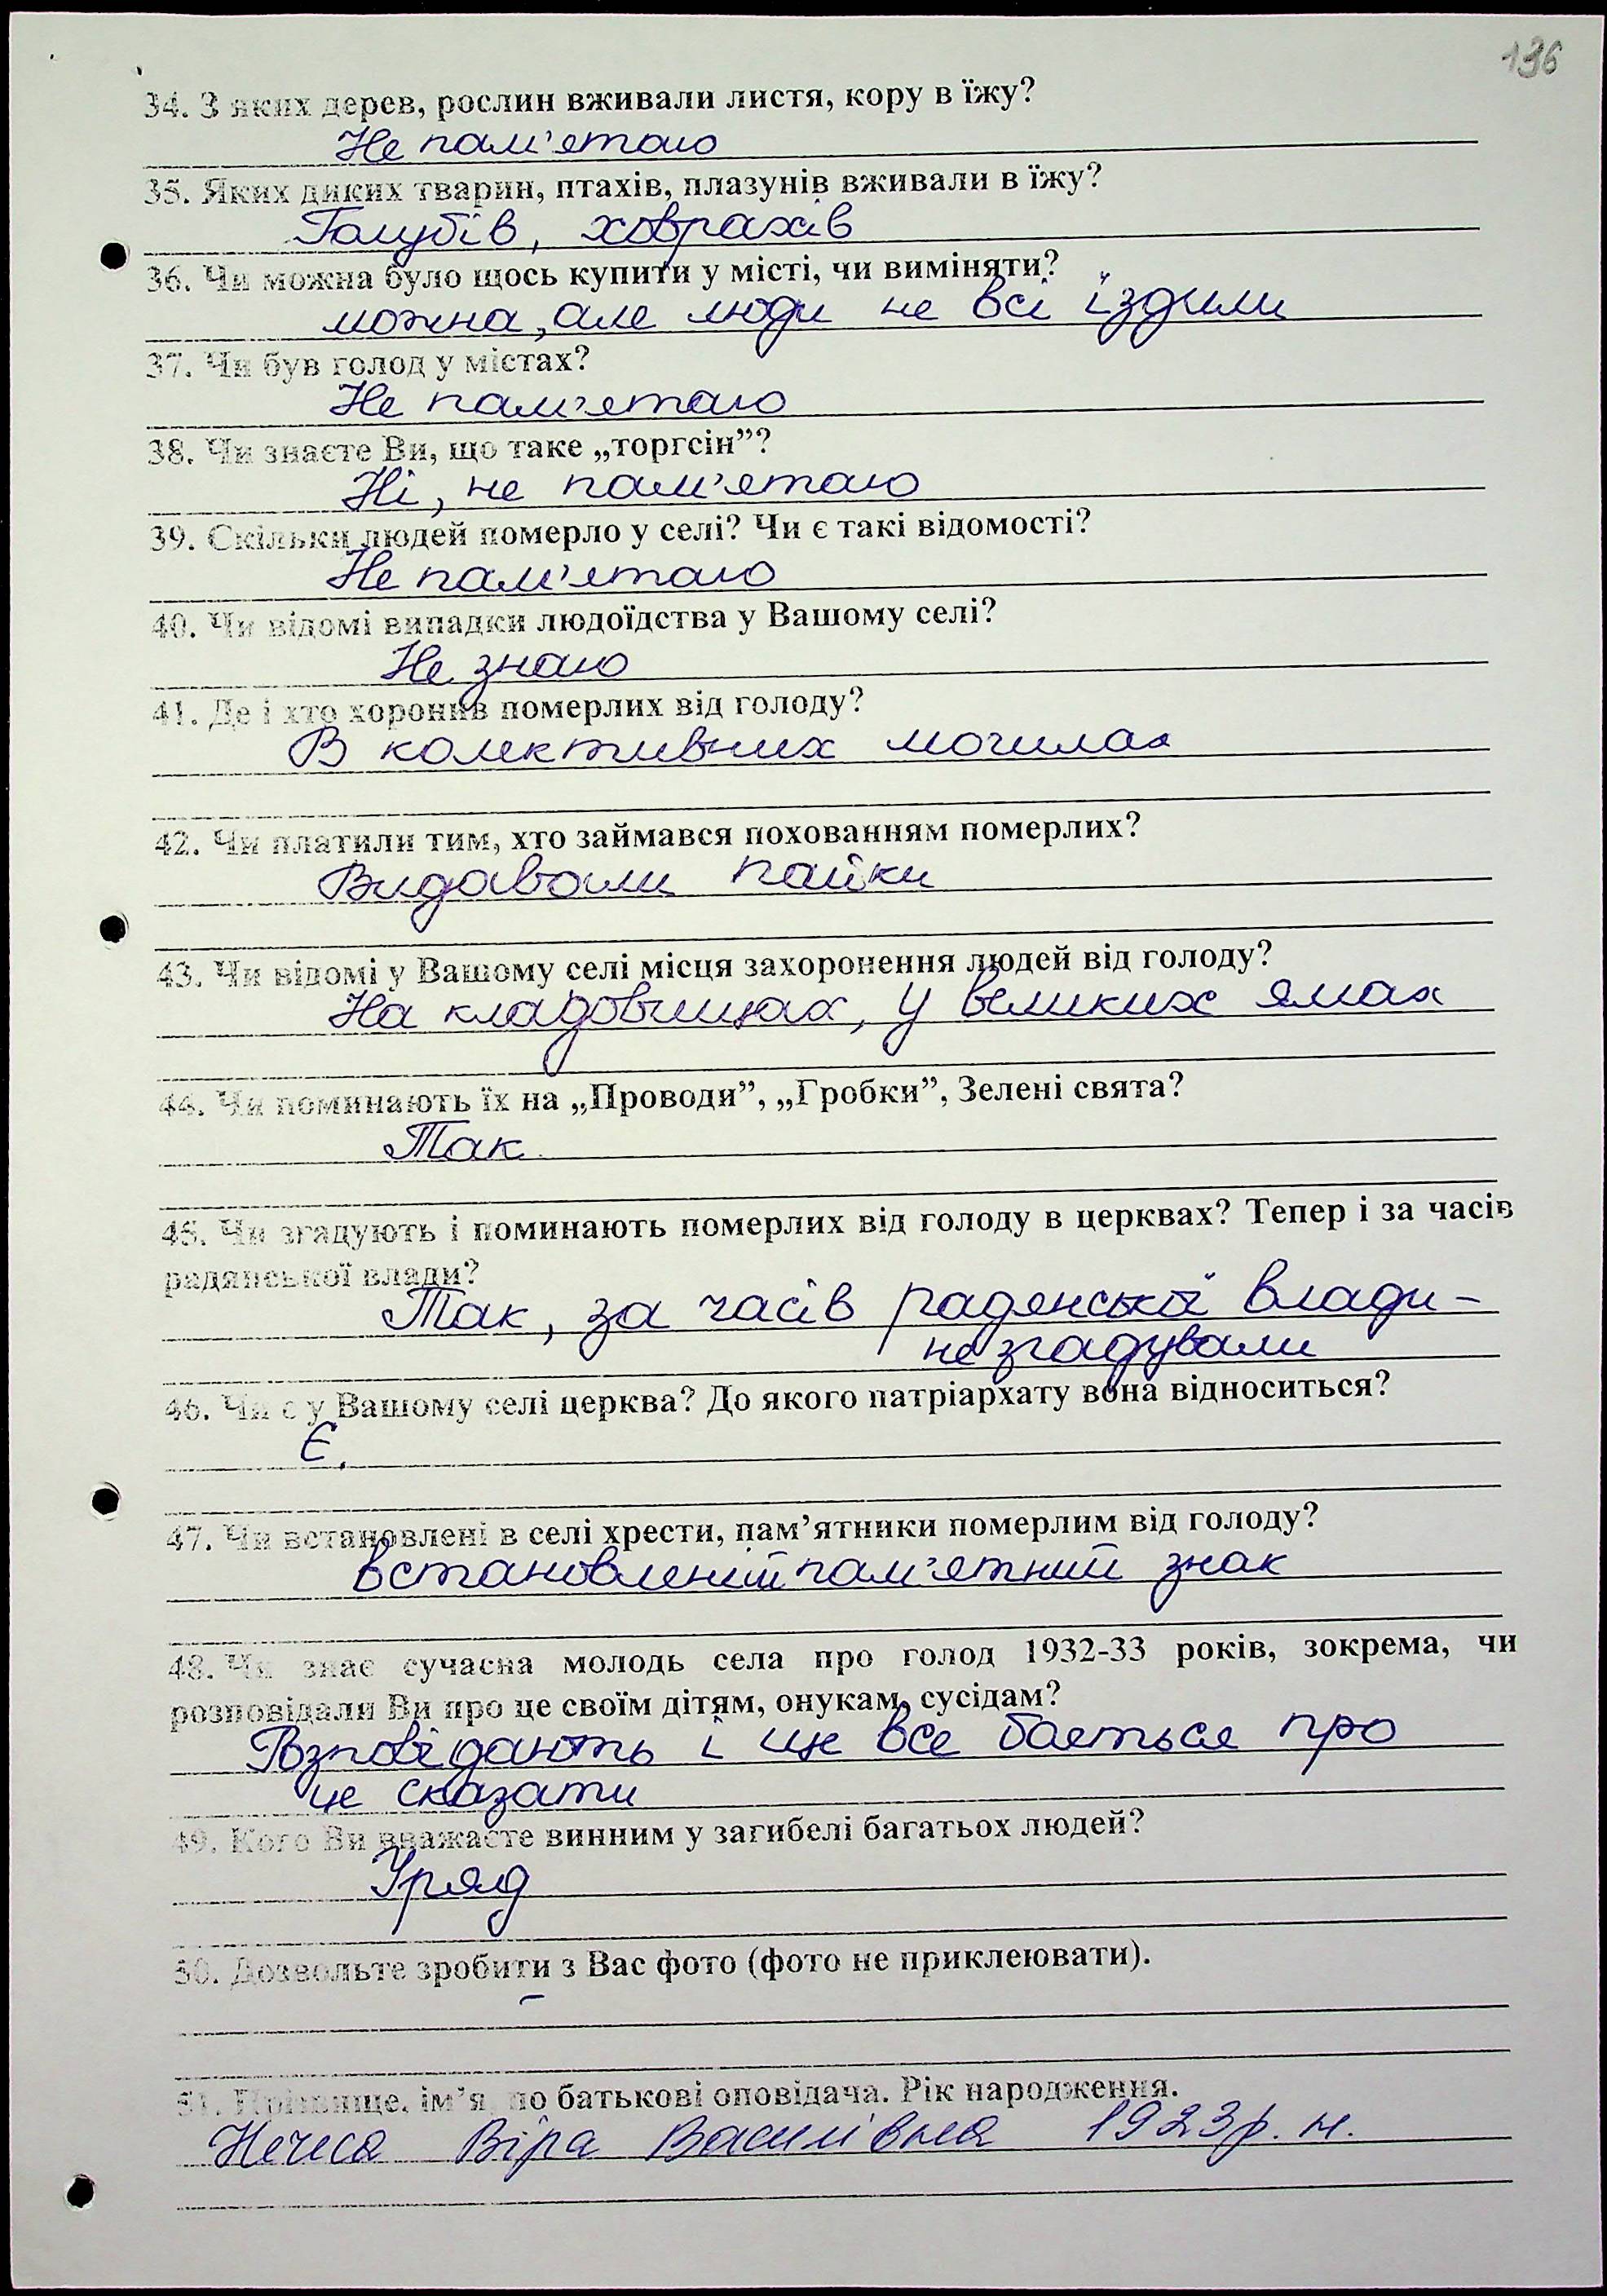 196
34. З яких дерев, рослин вживали листя, кору в їжу?
Не пам'ятаю
35. Яких диких тварин, птахів, плазунів вживали в їжу?
Голубів, ховрахів
36. Чи можна було щось купити у місті, чи виміняти?
можна, але люди не всі їздили
37. Чи був голод у містах?
Не пам'ятаю
38. Чи знаєте Ви, що таке „торгсін”?
Ні, не пам'ятаю
39. Скільки людей померло у селі? Чи є такі відомості?
Не пам'ятаю
40. Чи відомі випадки людоїдства у Вашому селі?
Не знаю
41. Де і хто хоронив померлих від голоду?
В колективних могилах
42. Чи платили тим, хто займався похованням померлих?
Видавали пайки
43. Чи відомі у Вашому селі місця захоронення людей від голоду?
На кладовищах, у великих ямах
44. Чи поминають їх на „Проводи”, „Гробки”, Зелені свята?
Так
45. Чи згадують і поминають померлих від голоду в церквах? Тепер і за часів
радянської влади?
Так, за часів радянської влади -
не згадували
46. Чи є у Вашому селі церква? До якого патріархату вона відноситься?
Є.
47. Чи встановлені в селі хрести, пам’ятники померлим від голоду?
встановлений пам'ятний знак
48. Чи знає сучасна молодь села про голод 1932-33 років, зокрема, чи
розповідали Ви про це своїм дітям, онукам, сусідам?
Розповідають і ще все бається про
це сказати
49. Кого Ви вважаєте винним у загибелі багатьох людей?
Уряд
50. Дозвольте зробити з Вас фото (фото не приклеювати).
–
51. Прізвище, ім’я, по батькові оповідача. Рік народження.
Нечеса Віра Василівна 1923 р. н.